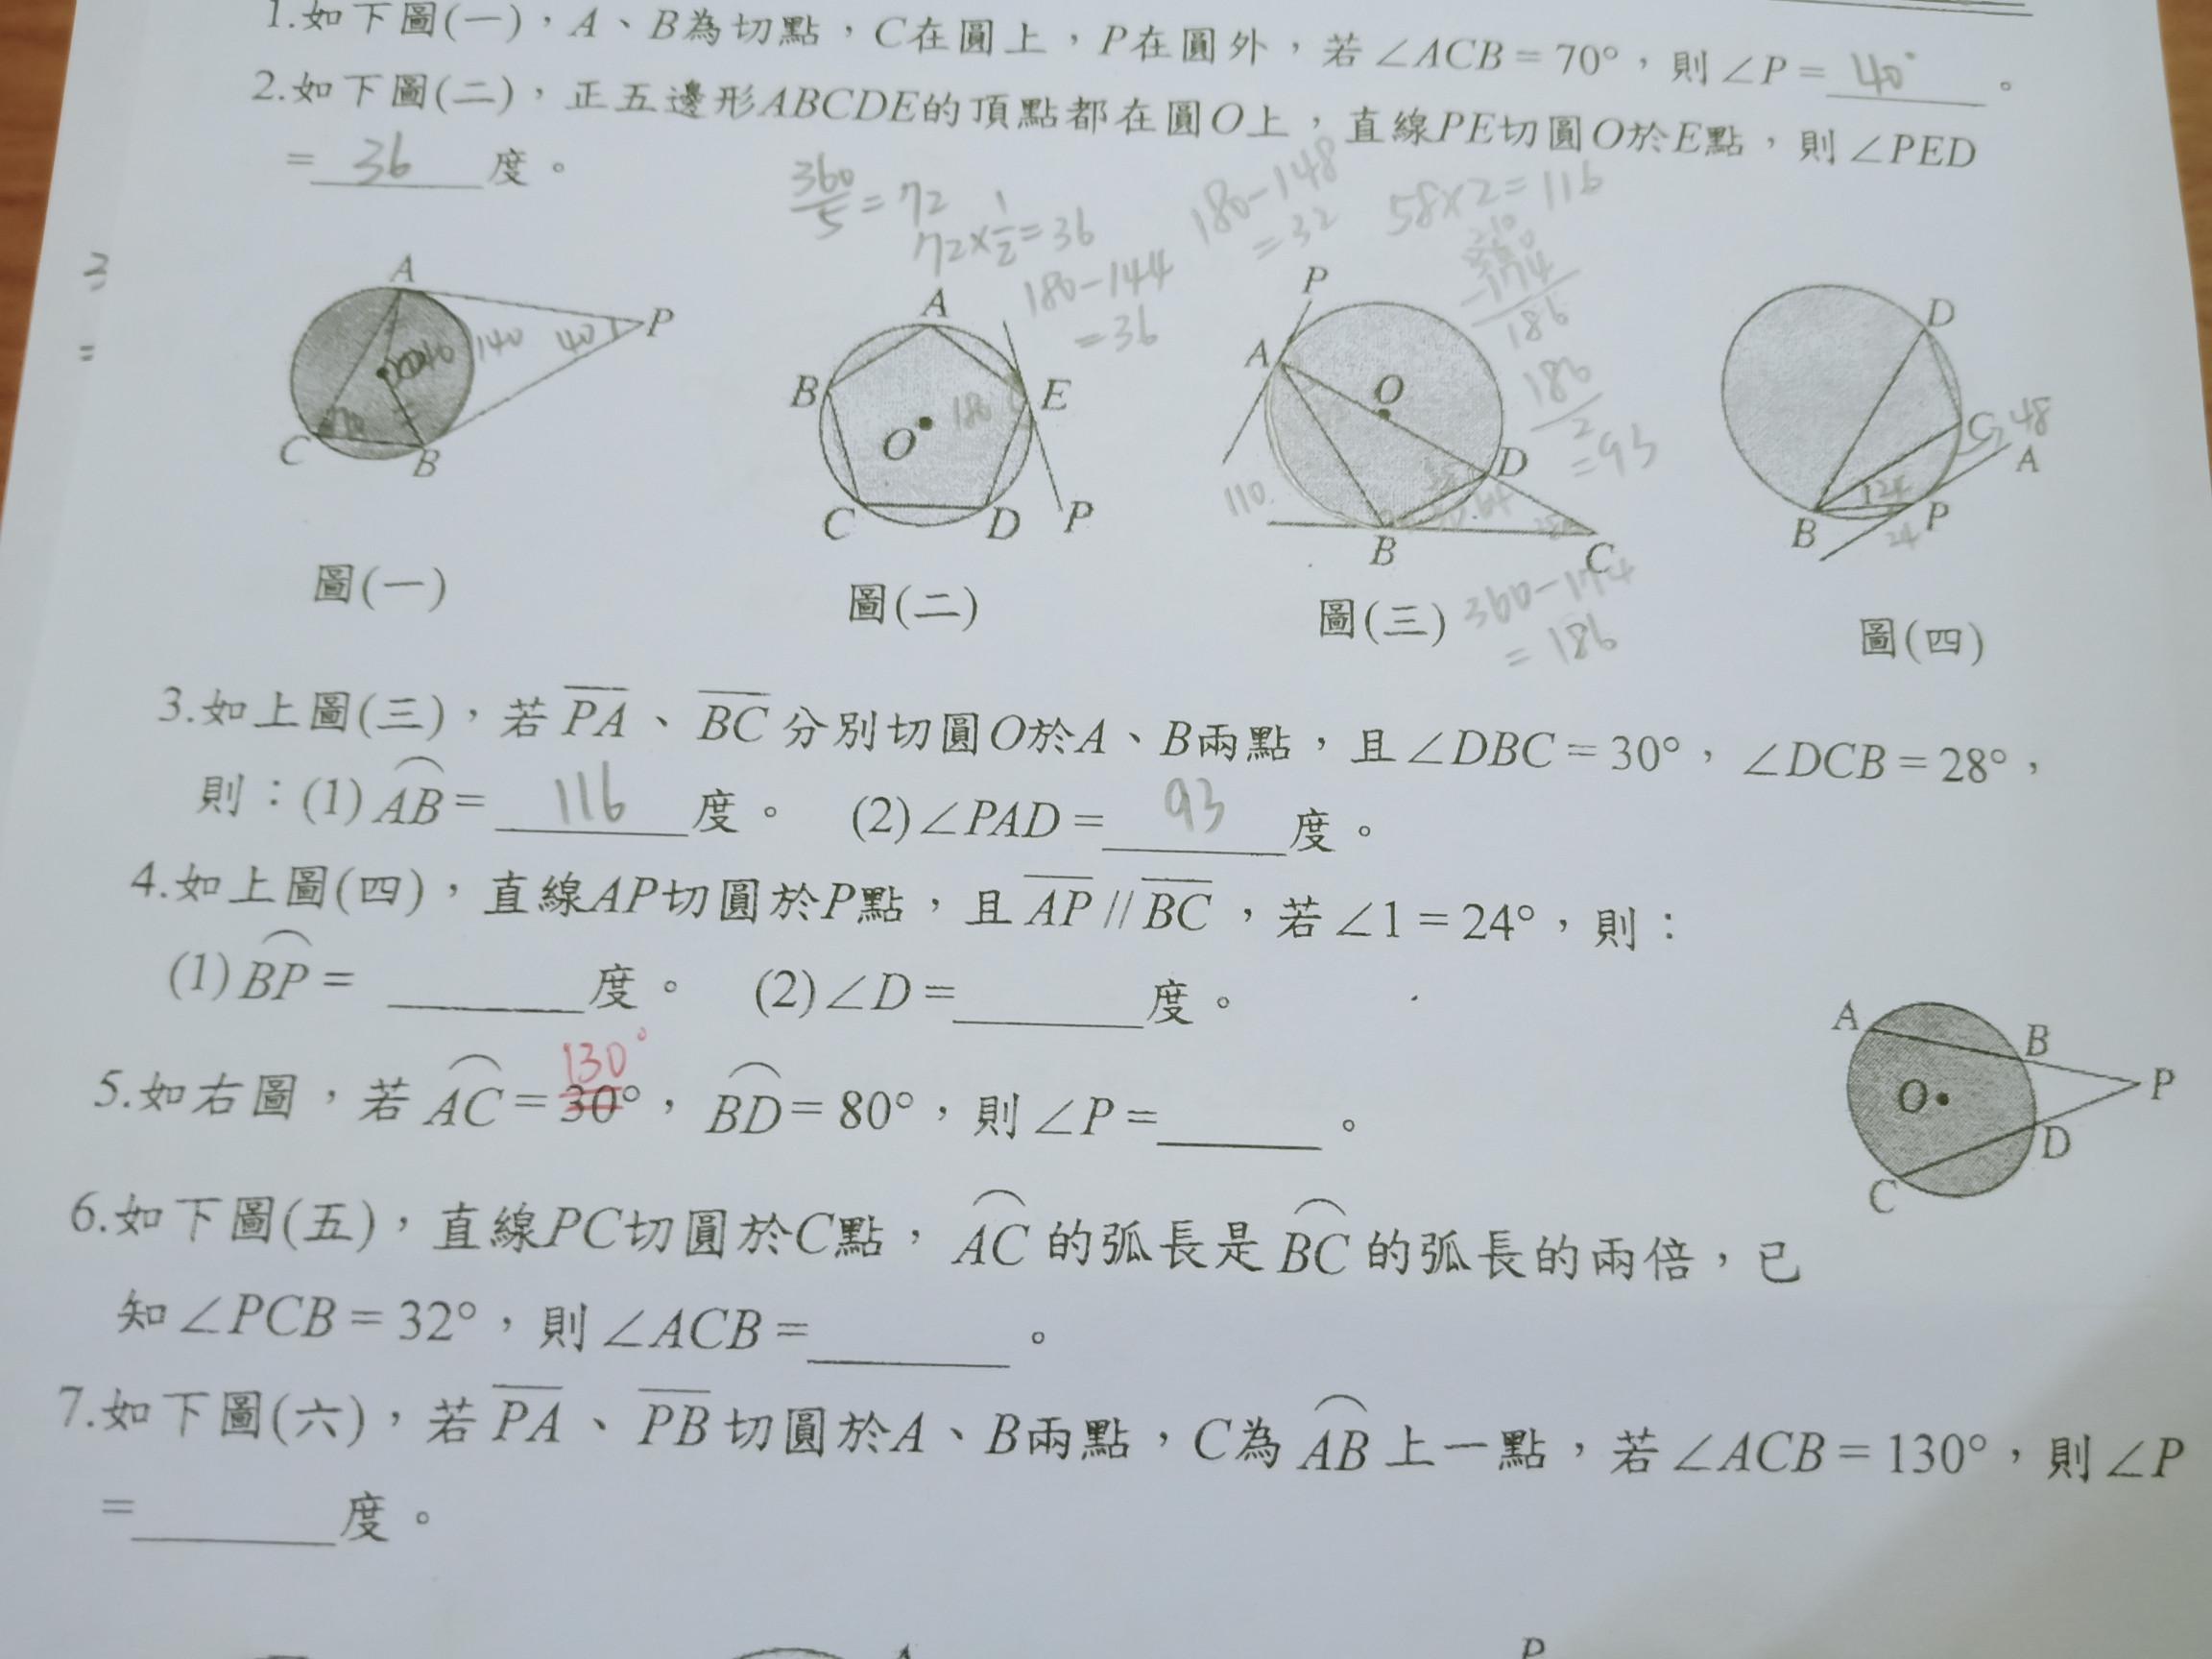 1.如下圖(一)，A、B為切點，C在圓上，P在圓外，若∠ACB=70°，則∠P= 40° 。
2.如下圖(二)，正五邊形ABCDE的頂點都在圓O上，直線PE切圓O於E點，則∠PED
= 36 度。
360/5=72
72×1/2=36
180-144
=36
180-148
=32
58×2=116
-174
186
186/2
=93
3
=
A
140
40
P
C
B
A
B
E
O
C
D
P
P
A
O
D
110
B
C
D
C
48
A
B
P
24
圖(一)
圖(二)
圖(三)
360-174
=186
圖(四)
3.如上圖(三)，若PA、BC分別切圓O於A、B兩點，且∠DBC=30°，∠DCB=28°，
則：(1)AB= 116 度。 (2)∠PAD= 93 度。
4.如上圖(四)，直線AP切圓於P點，且AP//BC，若∠1=24°，則：
(1)BP= 度。 (2)∠D= 度。
130°
5.如右圖，若AC=30°，BD=80°，則∠P= 。
A
B
O
P
D
C
6.如下圖(五)，直線PC切圓於C點，AC的弧長是BC的弧長的兩倍，已
知∠PCB=32°，則∠ACB= 。
7.如下圖(六)，若PA、PB切圓於A、B兩點，C為AB上一點，若∠ACB=130°，則∠P
= 度。